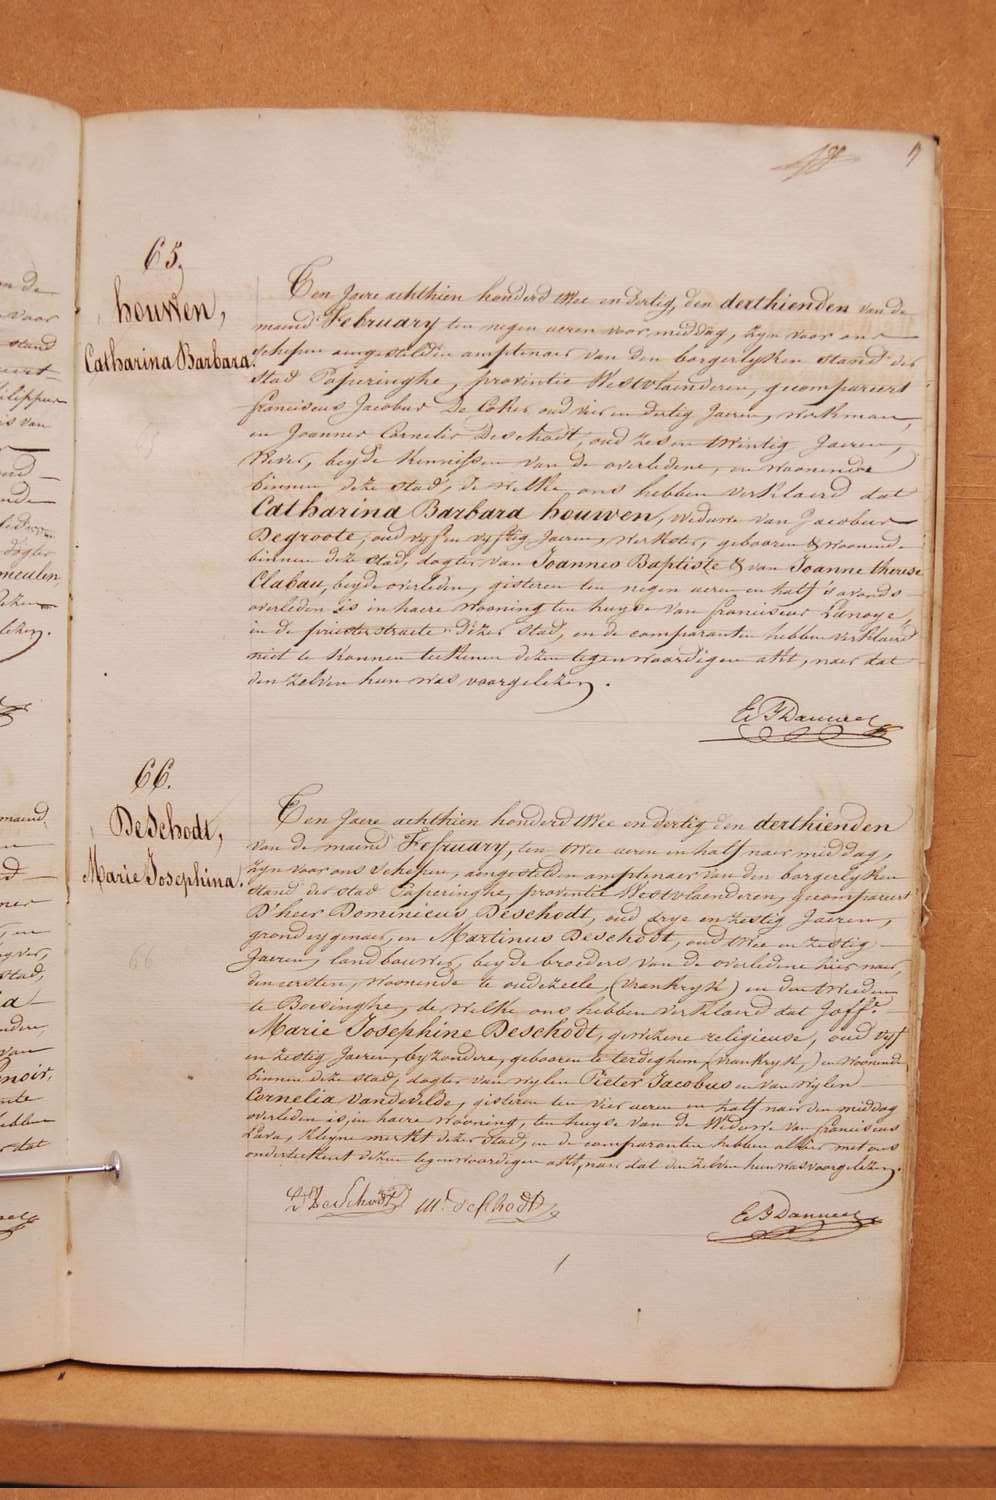 65,
houwen,
Catharina Barbara.
Ten Jaere achthien honderd twee en dertig, den derthienden van de
maend February ten negen ueren voor middag, zyn voor ons
schepen aengestelden amptenaer van den borgerlyken stand der
stad Poperinghe, provintie Westvlaenderen, gecompareert
franciscus Jacobus De Coker oud vier en dertig Jaeren, werkman,
en Joannes Cornelis Deschodt, oud zes en twintig Jaeren,
wever, beyde kennissen van de overledene, en woonende
binnen deze stad, de welke ons hebben verklaerd dat
Catharina Barbara houwen, weduwe van Jacobus
Degroote, oud vyf en vyftig Jaeren, werkster, gebooren & woonende
binnen deze stad, dogter van Joannes Baptiste & van Joanne therese
Clabau, beyde overleden, gisteren ten negen ueren en half 's avonds
overleden is in haere wooning ten huyse van franciscus Lanoye,
in de priesterstraete dezer stad, en de comparanten hebben verklaerd
niet te konnen teekenen dezen tegenwoordigen akt, naer dat
den zelven hun was voorgelezen.
66.
DeSchodt,
Marie Josephina.
Ten Jaere achthien honderd twee en dertig den derthienden
van de maend February, ten twee ueren en half naer middag,
zyn voor ons schepen, aengestelden amptenaer van den borgerlyken
stand der stad Poperinghe, provintie Westvlaenderen, gecompareert
D'heer Dominicus Deschodt, oud drye en zestig Jaeren,
grondeygenaer, en Martinus Deschodt, oud twee en zestig
Jaeren, landbouwer, beyde broeders van de overledene hier naer,
den eersten, woonende te oudezeele, (vrankryk) en den tweeden
te Boesinghe, de welke ons hebben verklaerd dat Joffe.
Marie Josephine Deschodt, gewezene religieuse, oud vyf
en zestig Jaeren, byzondere, gebooren te terdeghem, (vrankryk,) en woonende
binnen deze stad, dogter van wylen Pieter Jacobus en van wylen
Cornelia Vandevelde, gisteren ten vier ueren en half naer den middag
overleden is, in haere wooning, ten huyse van de Weduwe van franciscus
Lava, kleyne merkt dezer stad, en de comparanten hebben alhier met ons
onderteekent dezen tegenwoordigen akt, naer dat den zelven hun was voorgelezen.
DeSchodt M. deschodt
66